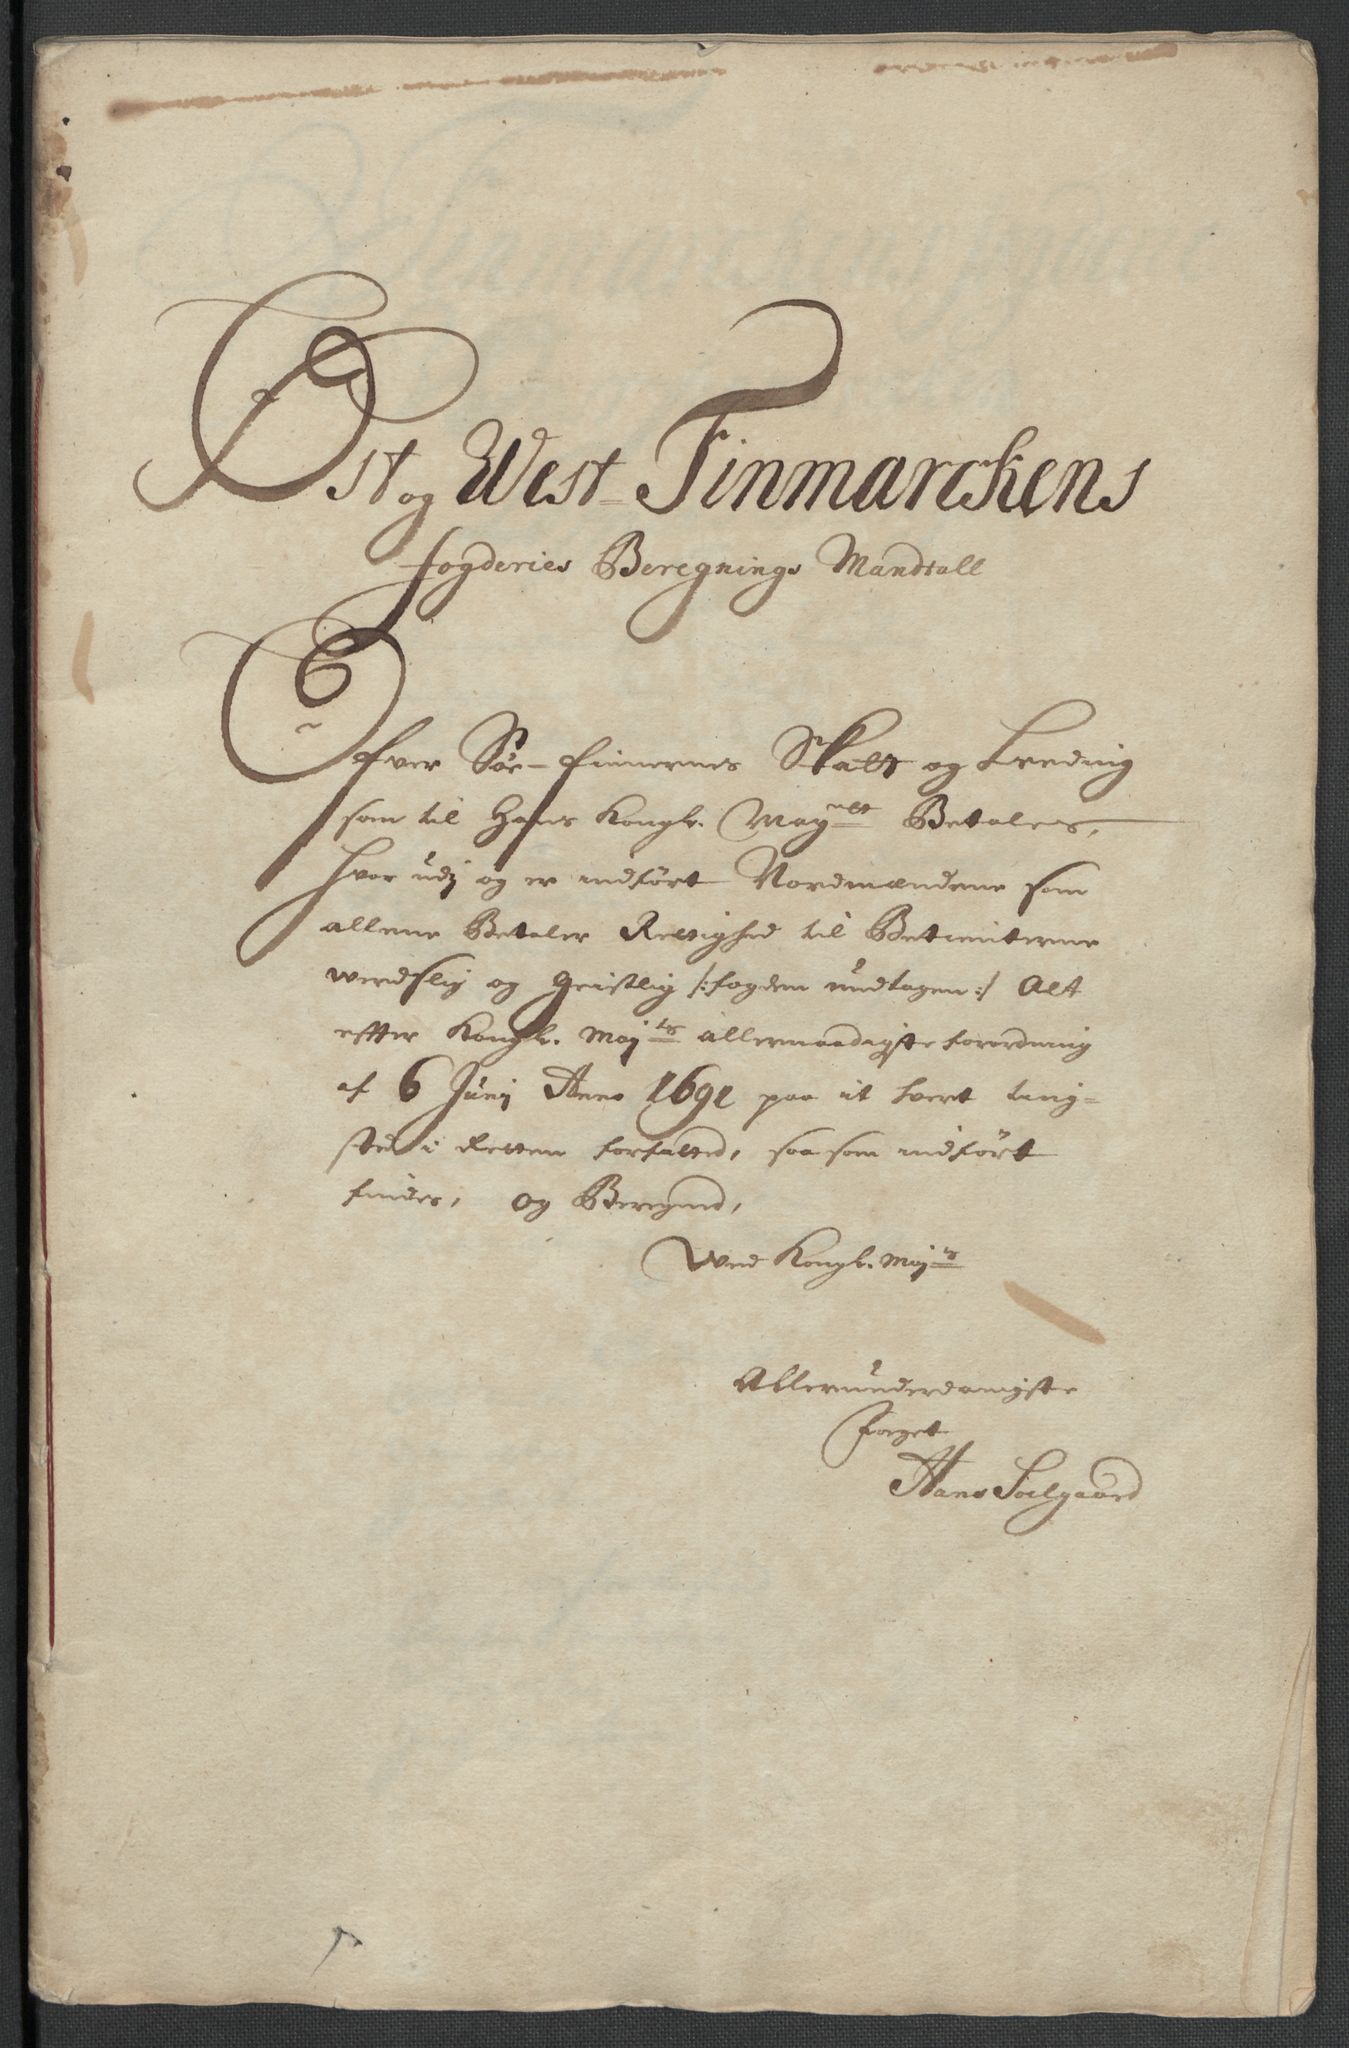 Øst og West Finmarckens
fogderies Beregnings Mandtall
Ofver Søe-finnernes Skatt og Leeding
som til Hans Kongl. Mayts Betales,
hvor udj og er indført Nordmændene som
allene Betaler Rettighed til Betienterne
werdslig og Geistlig /:fogden undtagen:/ Alt
efter Kongl. Majts allernaadigste forordning
af 6 Junj Anno 1691 paa it hvert ting-
sted i Retten forfatted, saa som indført
findes, og Beregned,
Wed Kongl. Majts
Allerunderdanigste
foget
Hans Soelgaard